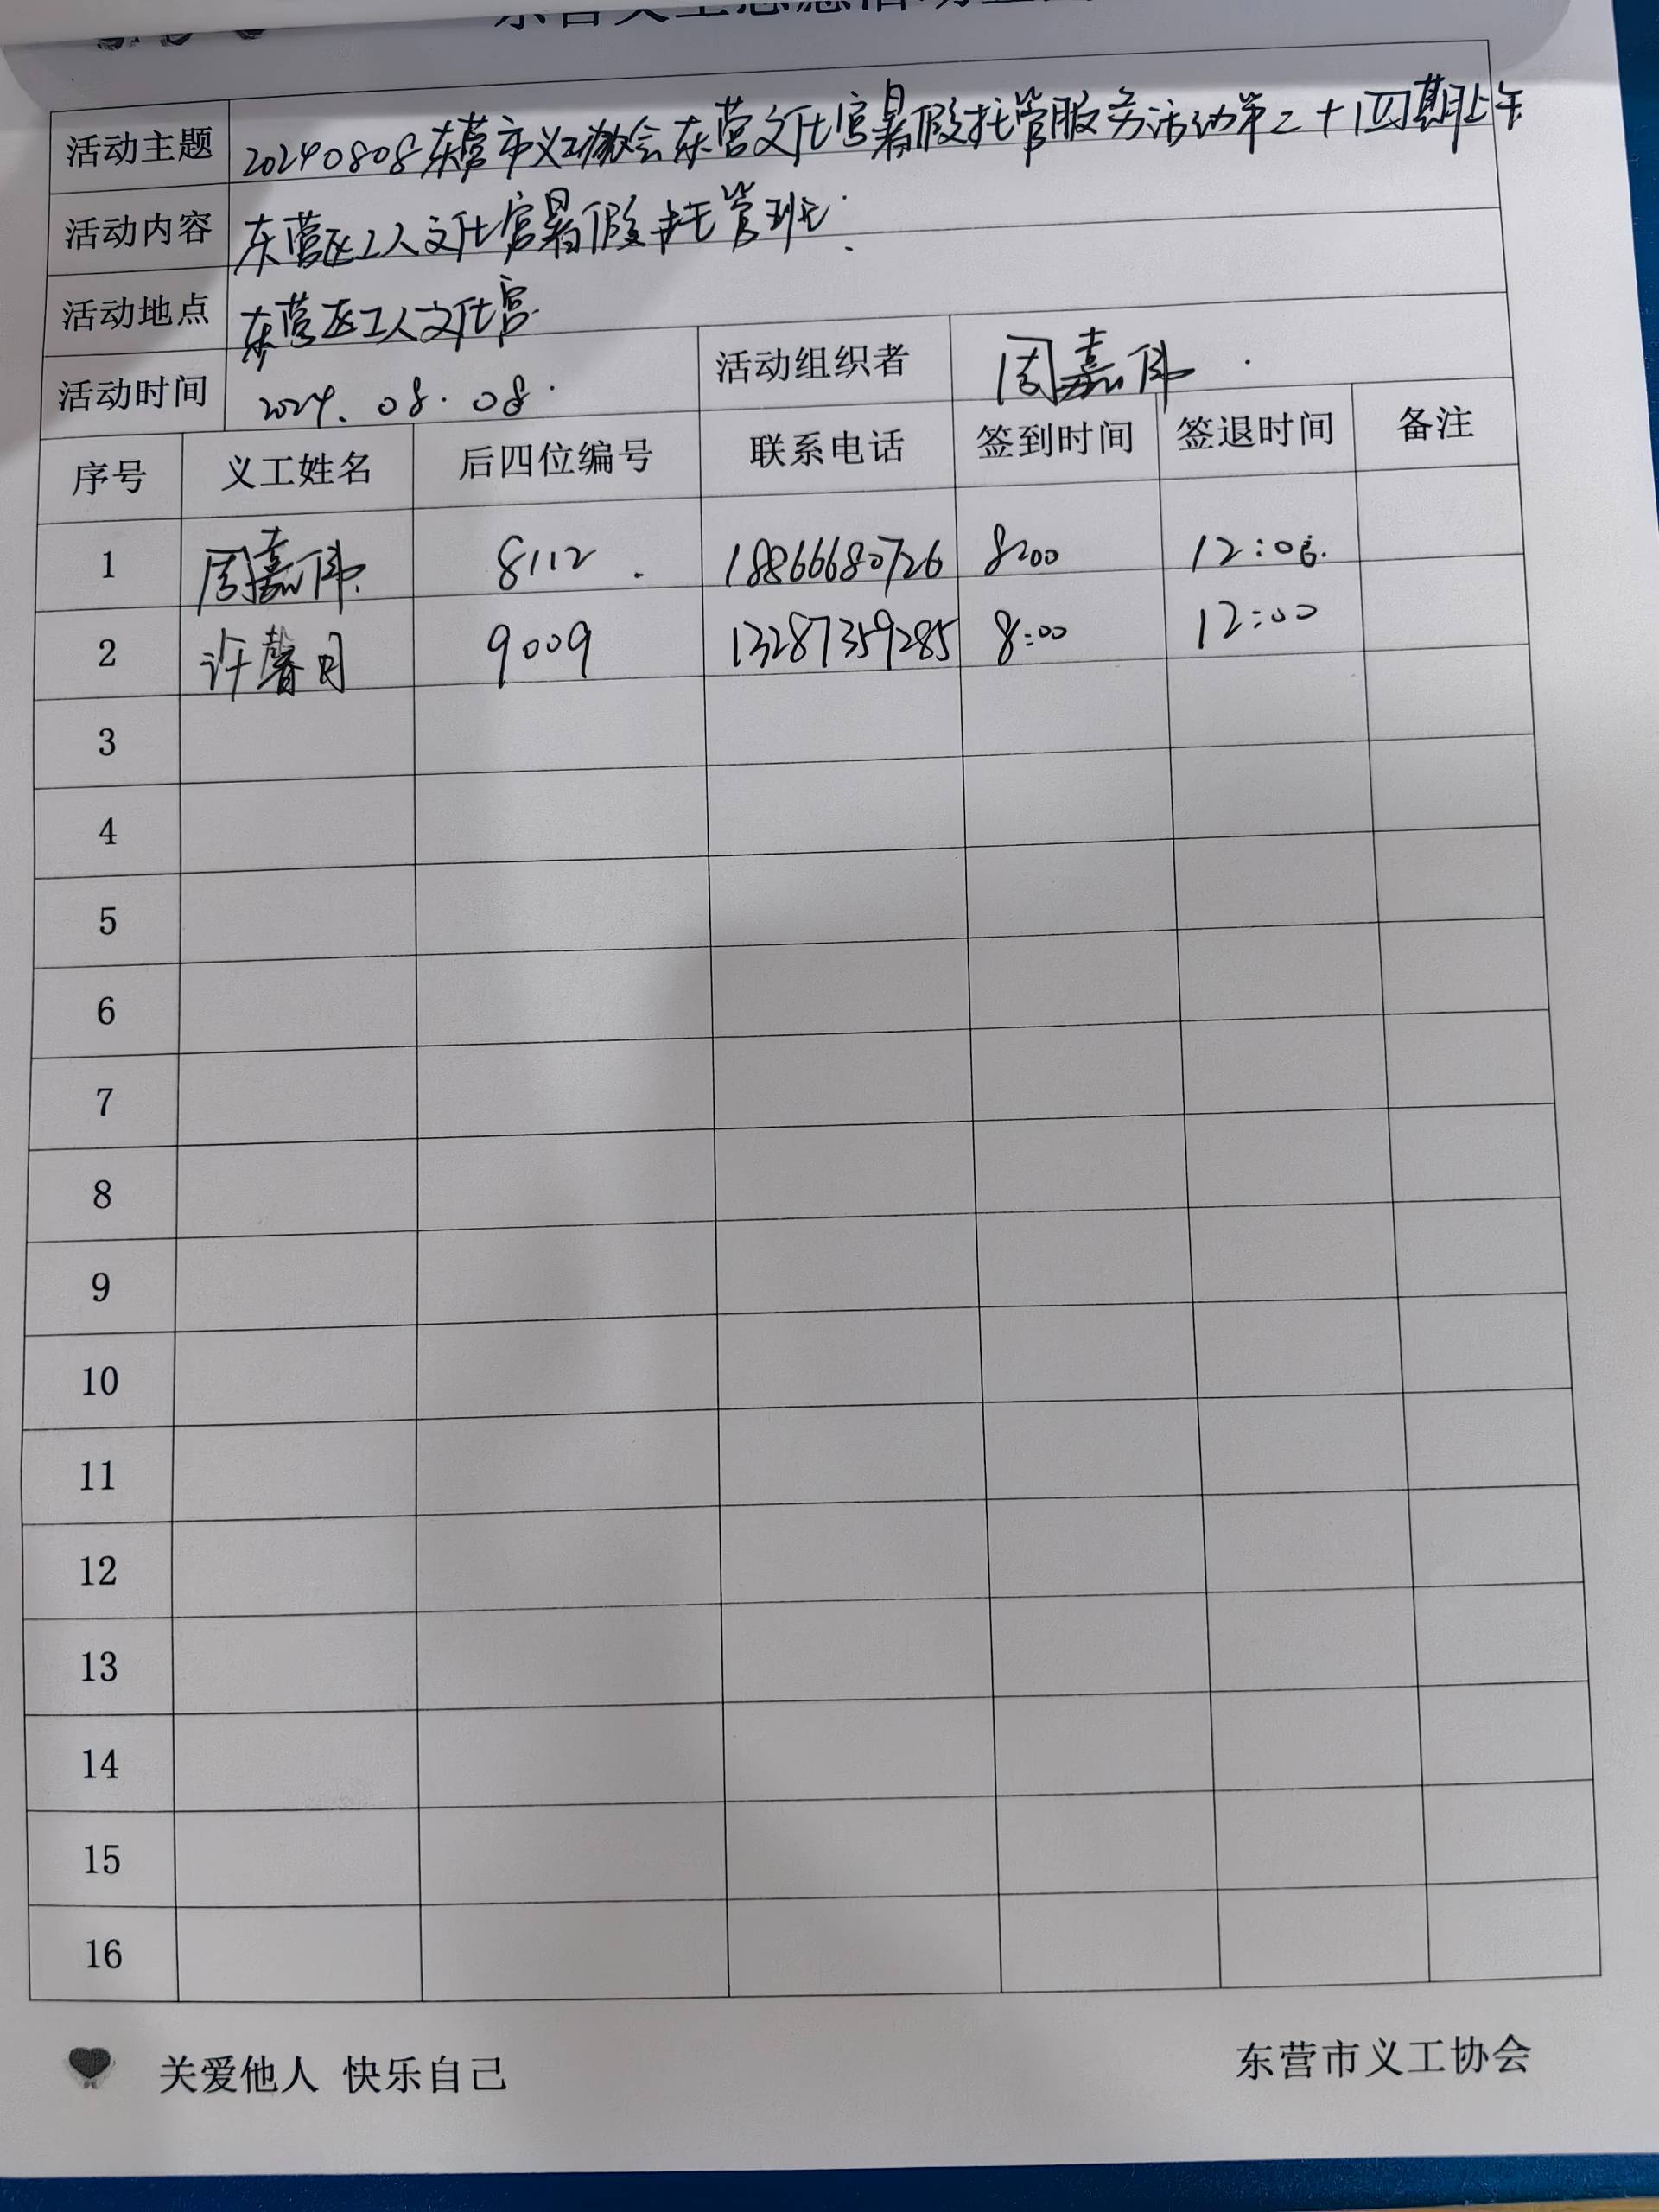 活动主题 20240808东营市义工协会东营文化宫暑假托管服务活动第二十四期上午
活动内容 东营区工人文化宫暑假托管班
活动地点 东营区工人文化宫
活动时间 2024.08.08. 活动组织者 周嘉伟
序号 义工姓名 后四位编号 联系电话 签到时间 签退时间 备注
1 周嘉伟 8112 18866680726 8:00 12:00
2 许馨月 9009 13287359285 8:00 12:00
3
4
5
6
7
8
9
10
11
12
13
14
15
16
关爱他人 快乐自己 东营市义工协会